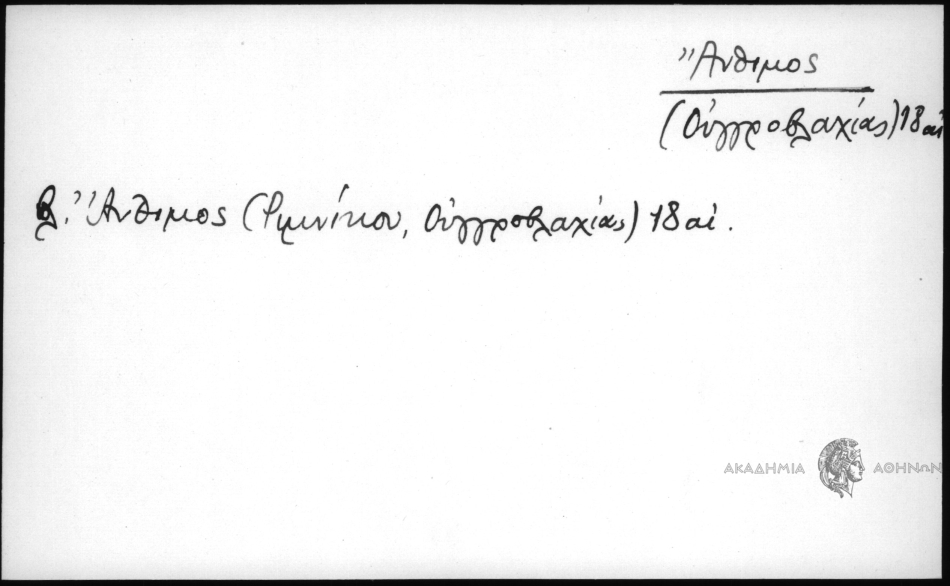 Ἄνθιμος
(Οὑγγροβλαχίας) 18 αἰ
βλ. Ἄνθιμος (Ριμνίκου, Οὑγγροβλαχίας) 18 αἰ.
ΑΚΑΔΗΜΙΑ ΑΘΗΝΩΝ